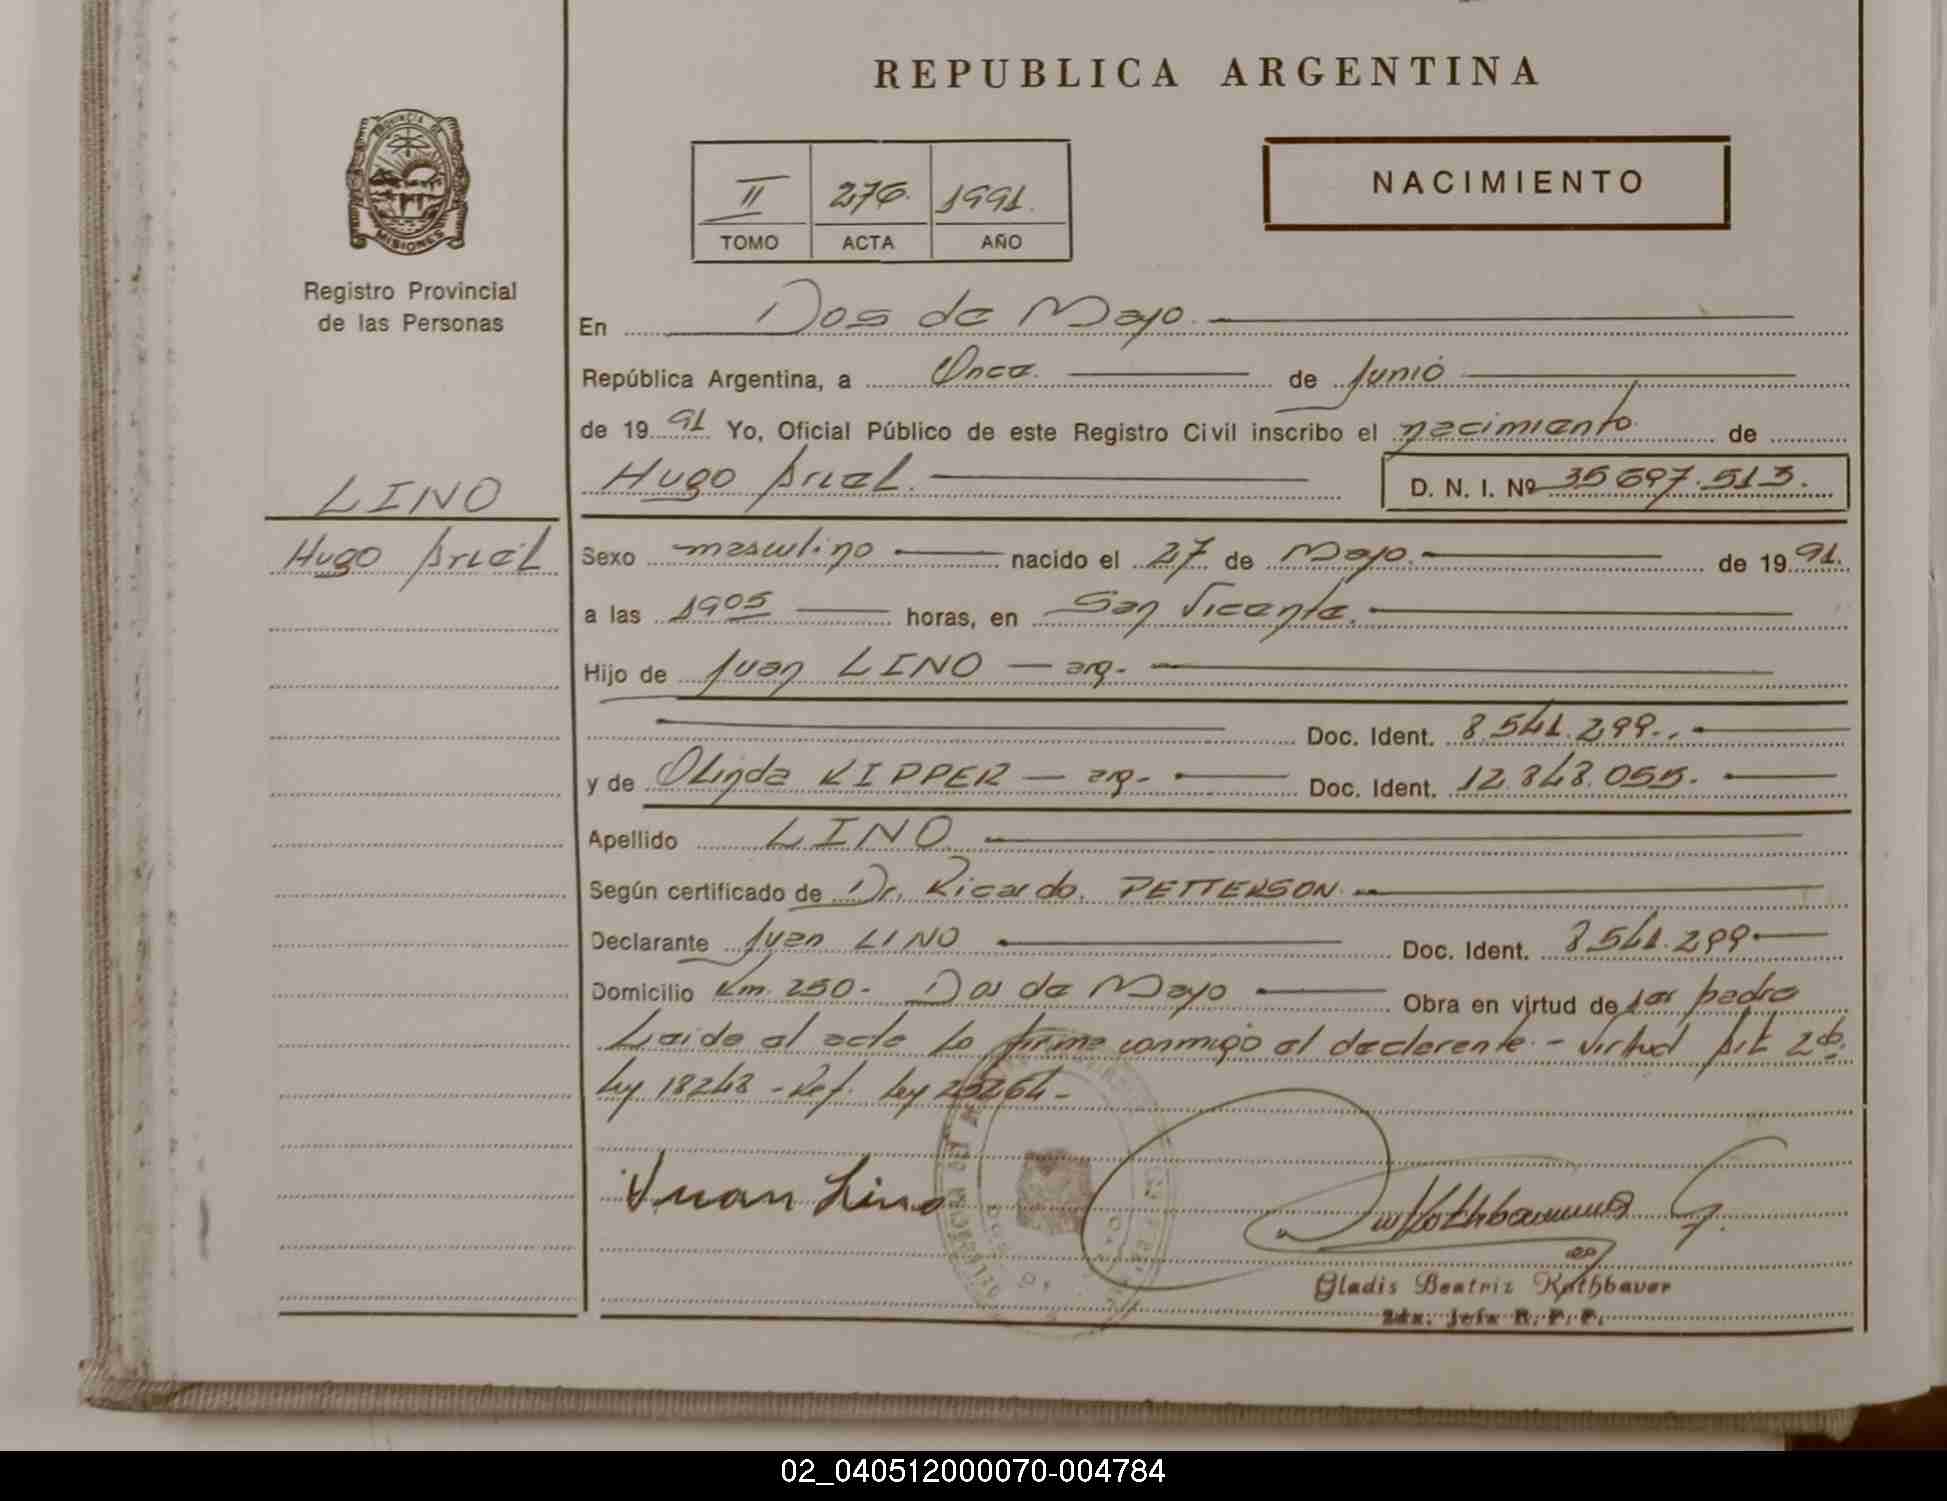 REPUBLICA ARGENTINA
PROVINCIA DE
MISIONES
Registro Provincial
de las Personas
II 276. 1991.
TOMO ACTA AÑO
NACIMIENTO
En Dos de Mayo.
República Argentina, a Once. de Junio
de 1991 Yo, Oficial Público de este Registro Civil inscribo el nacimiento de
Hugo Ariel. D. N. I. Nº 35697.513.
LINO
Hugo Ariel
Sexo masculino nacido el 27 de Mayo. de 1991.
a las 1905 horas, en San Vicente.
Hijo de Juan LINO — arg-
Doc. Ident. 8.541.299..
y de Olinda KIPPER — arg- Doc. Ident. 12.848.055.
Apellido LINO
Según certificado de Dr. Ricardo. PETTERSON.
Declarante Juan LINO Doc. Ident. 8541.299
Domicilio Km. 250- Dos de Mayo Obra en virtud de ser padre
Leido el acta lo firma conmigo el declarente.- virtud Art 2do.
ley 18248 - Ref. ley 23264-
Juan Lino
Gladis Beatriz Rothbauer
R. P. P.
02_040512000070-004784